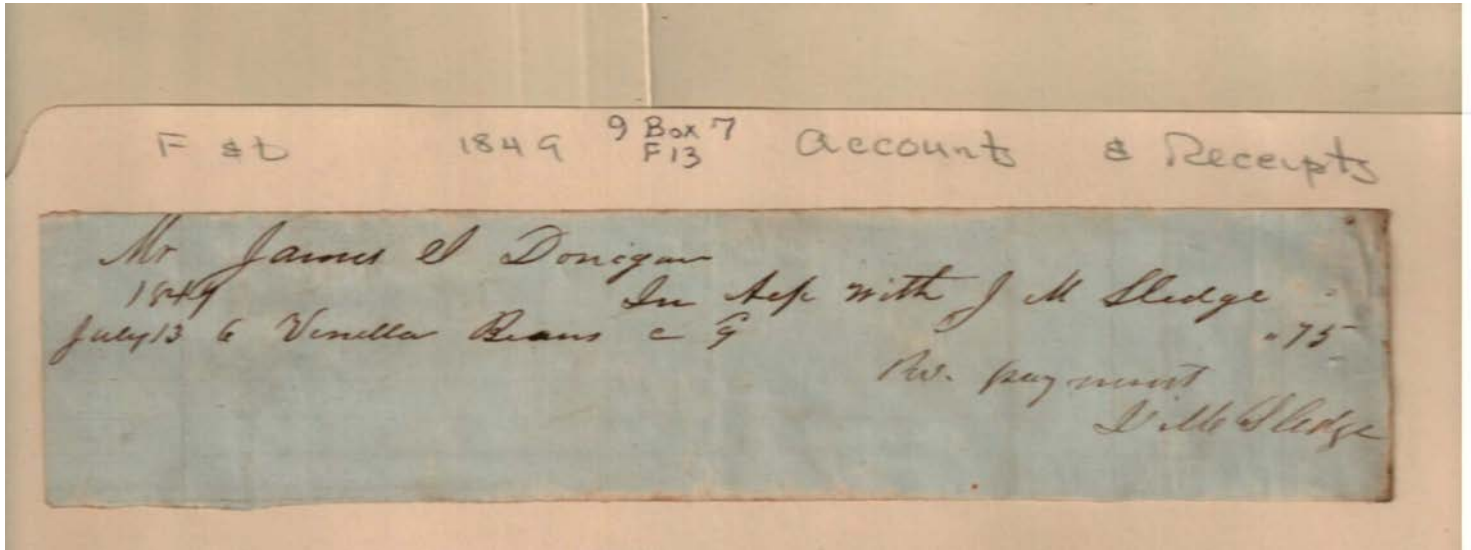 F & D 1849 9 Box 7 Accounts & Receipts
F13
Mr James I Donegan
1849 In Act with J M Sledge
July 13 6 Venilla Beans c G "75
Rec. payment
J M Sledge